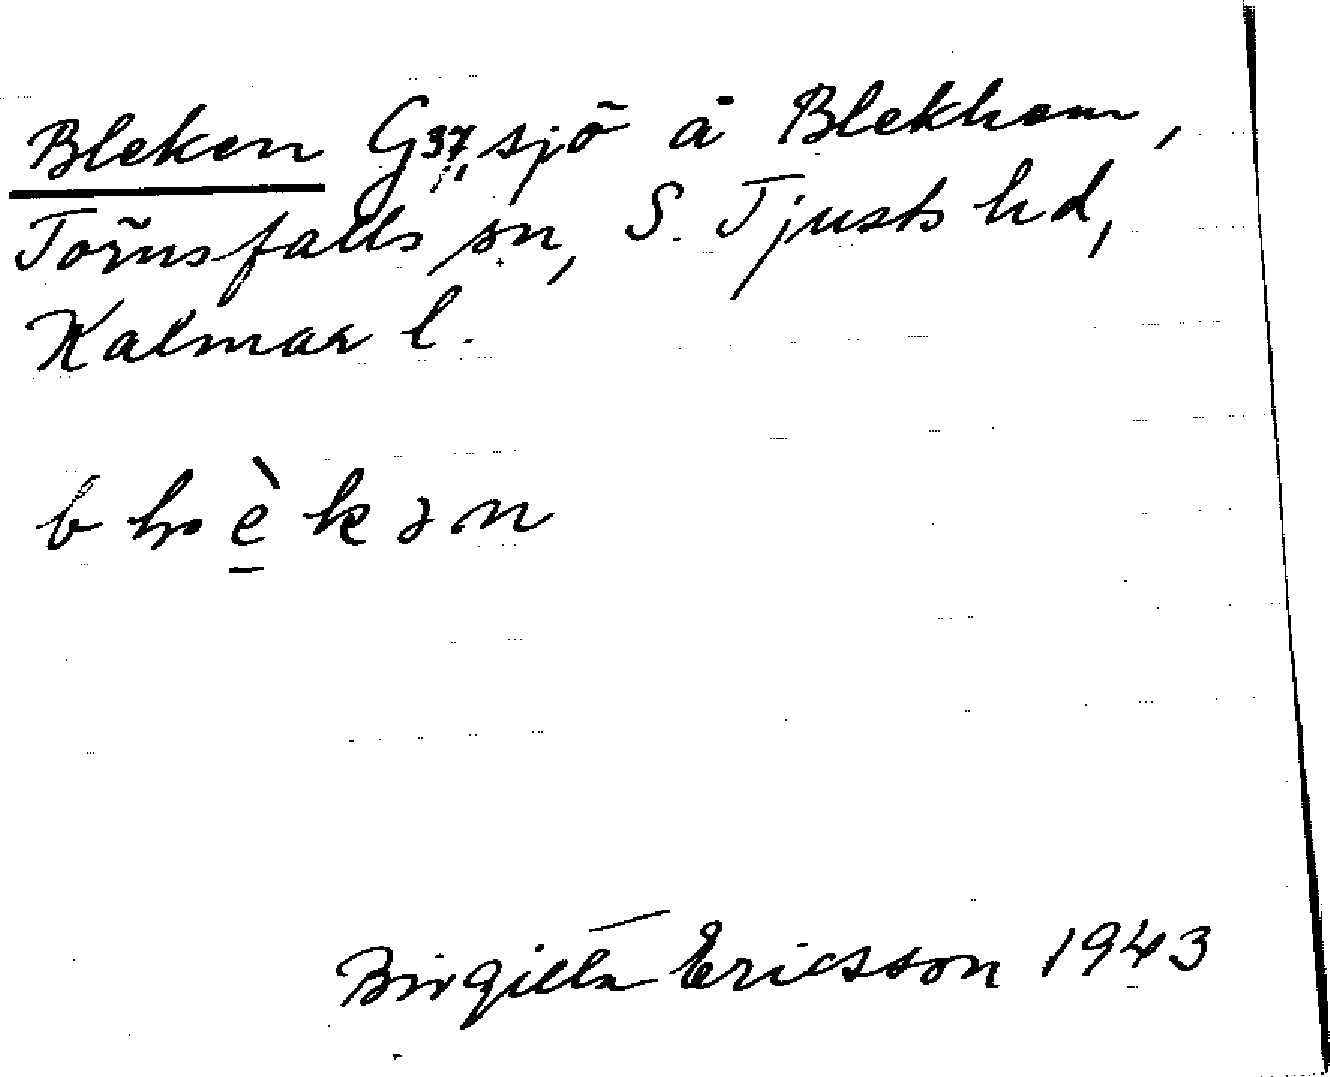 Bleken G37, sjö å Blekhem,
Törnsfalls sn, S. Tjusts hd,
Kalmar l.
Birgitta Ericsson 1943